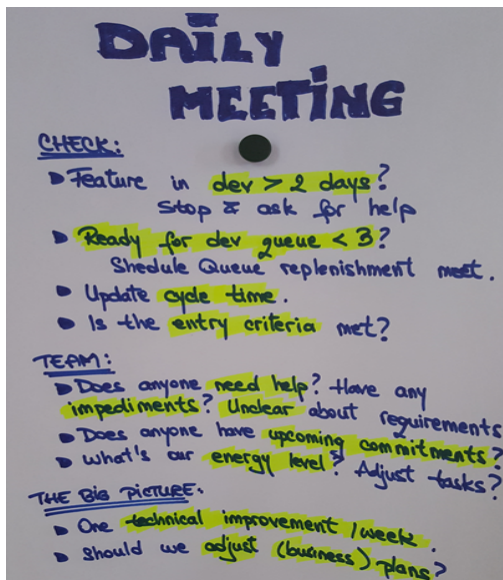 DAILY
MEETING
CHECK:
Feature in dev > 2 days?
Stop & ask for help
Ready for dev queue < 3?
Shedule Queue replenishment meet.
Update cycle time.
Is the entry criteria met?
TEAM:
Does anyone need help? Have any
impediments? Unclear about requirements
Does anyone have upcoming commitments?
What's our energy level? Adjust tasks?
THE BIG PICTURE.
One technical improvement /week.
Should we adjust (business) plans?